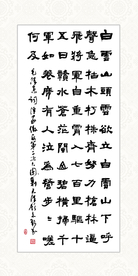 白雲山頭雲欲立白雲山下呼
聲急枯木朽株齊努力槍林逼
飛將軍自重霄入七百里驅十
五日贛水蒼茫閩山碧橫掃千
軍如卷席有人泣為營步步嗟
何及
毛澤東詞漁家傲反第二次大圍剿